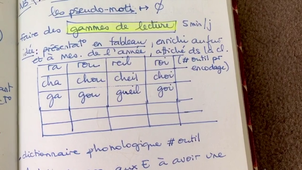 les pseudo-mots → Ø
Faire des gammes de lecture 5 min/j
présentat° en tableau, enrichi au fur
et à mes. de l'année, affiché ds la cl.
ra rou reil roi (# outil pr
cha chou cheil choi encodage)
ga gou gueil goi
.dictionnaire phonologique # outil
aux E à avoir une